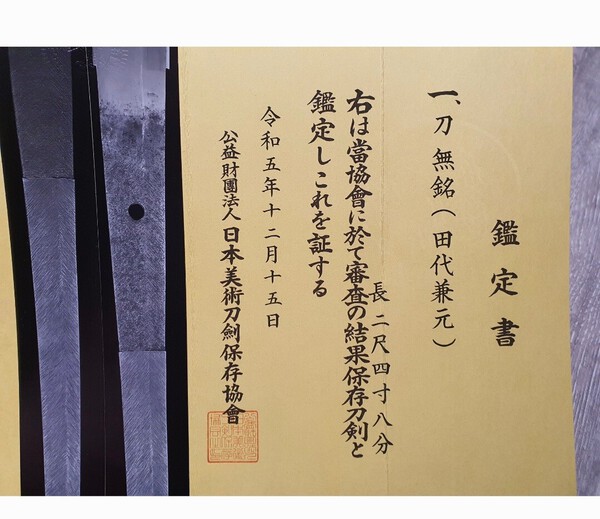 鑑定書
一、刀 無銘(田代兼元)
長 二尺四寸八分
右は當協會に於て審査の結果保存刀剣と
鑑定しこれを証する
令和五年十二月十五日
公益財團法人 日本美術刀劍保存協會